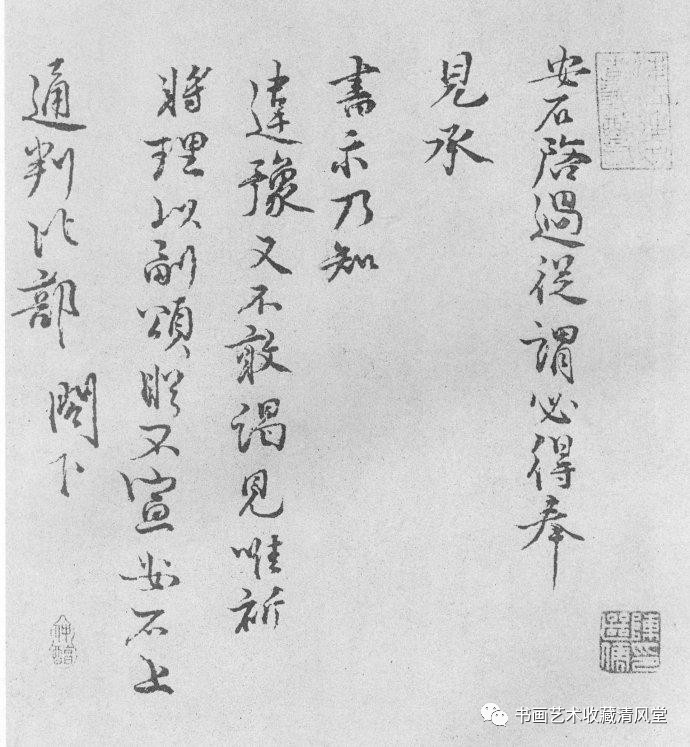 安石啓過從謂必得奉
見承
書示乃知
違豫又不敢謁見唯祈
將理以副頌詠不宣安石上
通判比部閣下
书画艺术收藏清风堂